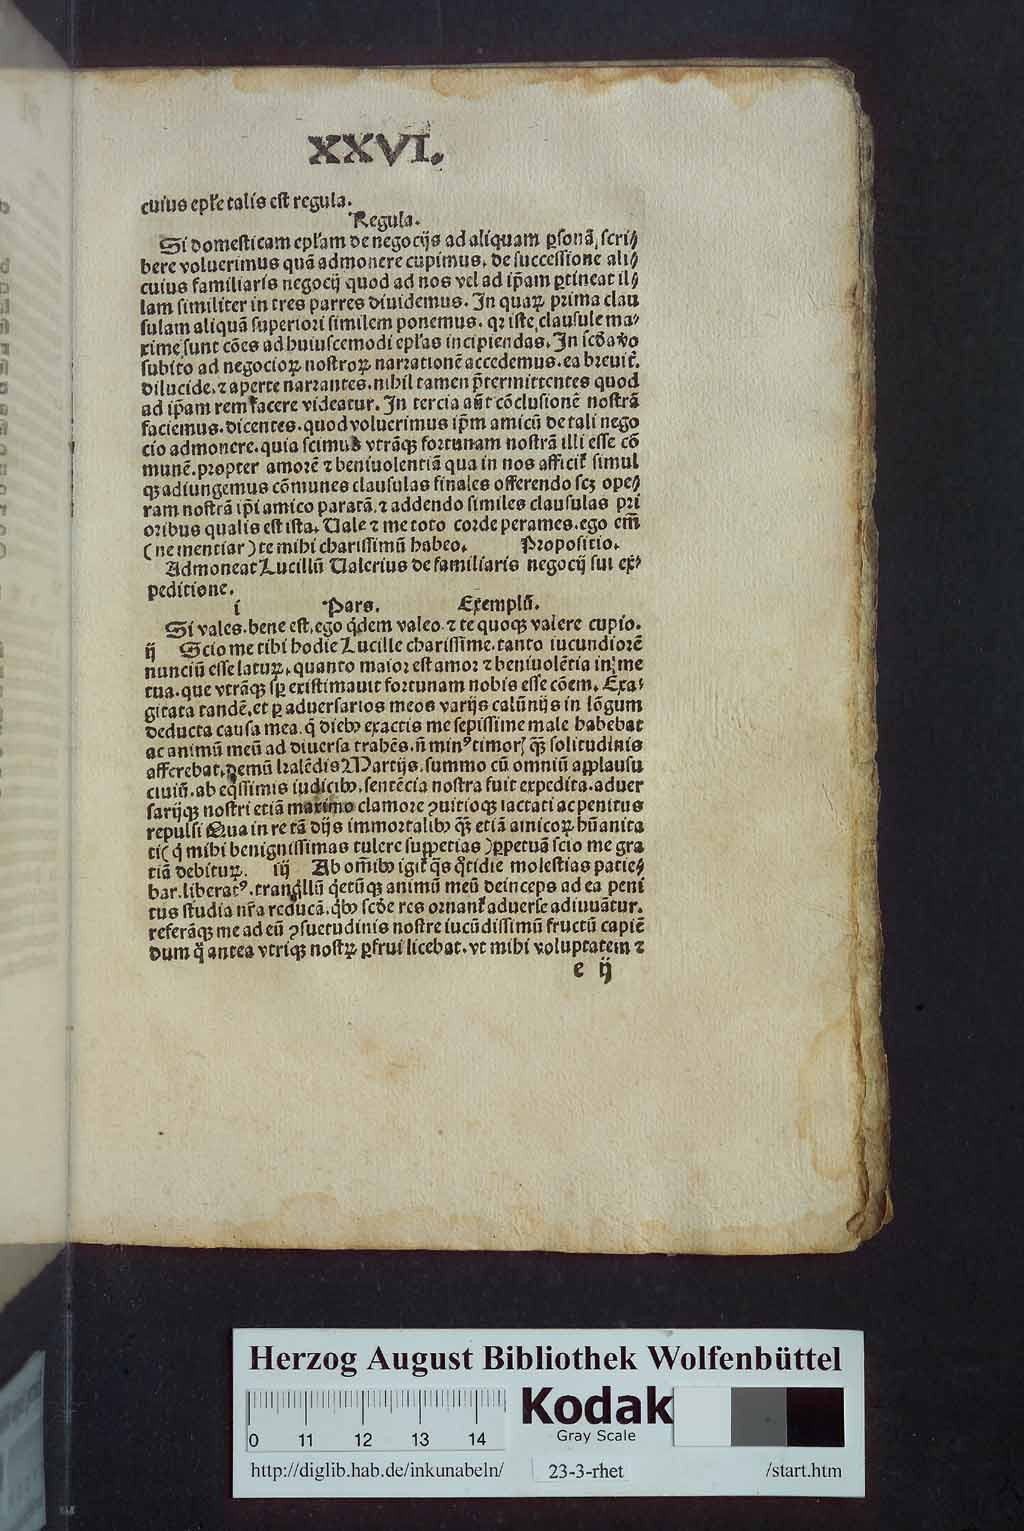 XXVI.
cuius epłe talis est regula.
Regula.
Si domesticam epłam de negocijs ad aliquam ꝑsonã, scri⸗
bere voluerimus quã admonere cupimus, de successione ali⸗
cuius familiaris negocij quod ad nos vel ad ip̃am ꝑtineat il⸗
lam similiter in tres parres diuidemus. In quaꝝ prima clau
sulam aliquã superiori similem ponemus. qꝛ iste clausule ma⸗
xime sunt cões ad huiuscemodi epłas incipiendas. In scďa ꝟo
subito ad negocioꝝ nostroꝝ narrationẽ accedemus. ea breuit᷑.
dilucide. ⁊ aperte narrantes. nihil tamen p̃termittentes quod
ad ip̃am rem facere videatur. In tercia aũt cõclusionẽ nostrã
faciemus. dicentes. quod voluerimus ip̃m amicũ de tali nego
cio admonere. quia scimus vtrãqꝫ fortunam nostrã illi esse cõ
munẽ. propter amorẽ ⁊ beniuolentiã qua in nos afficit᷑ simul
qꝫ adiungemus cõmunes clausulas finales offerendo scꝫ ope⸗
ram nostrã ip̃i amico paratã. ⁊ addendo similes clausulas pri
oribus qualis est ista. Uale ⁊ me toto corde perames. ego em̃
(ne mentiar) te mihi charissimũ habeo. Propositio.
Admoneat Lucillũ Ualerius de familiaris negocij sui ex⸗
peditione.
i Pars. Exemplũ.
Si vales. bene est, ego q̇dem valeo ⁊ te quoqꝫ valere cupio.
ij Scio me tibi hodie Lucille charissime. tanto iucundiorẽ
nunciũ esse latuꝝ. quanto maior est amor ⁊ beniuolẽtia in me
tua. que vtrãqꝫ sꝑ existimauit fortunam nobis esse cõem. Exa⸗
gitata tandẽ. et ꝑ aduersarios meos varijs calũnijs in lõgum
deducta causa mea. q̃ diebꝫ exactis me sepissime male habebat
ac animũ meũ ad diuersa trahẽs. ñ minꝰ timoꝝ qꝫ̃ solitudinis
afferebat. demũ kalẽdis Martijs. summo cũ omniũ applausu
ciuiũ. ab eq̇ssimis iudicibꝫ. sentẽcia nostra fuit expedita. aduer
sarijqꝫ nostri etiã maximo clamore ꝯuitioqꝫ iactati ac penitus
repulsi Qua in re tã dijs immortalibꝫ qꝫ̃ etiã amicoꝝ hũanita
ti (q̃ mihi benignissimas tulere suppetias) ꝑpetuã scio me gra
tiã debituꝝ. iij Ab om̃ibꝫ igit᷑ q̃s q̊tidie molestias patie⸗
bar. liberatꝰ. tranq̇llũ q̇etũqꝫ animũ meũ deinceps ad ea peni
tus studia nr̃a reducã. q̇bꝫ scďe res ornant᷑ aduerse adiuuãtur.
referãqꝫ me ad eũ ꝯsuetudinis nostre iucũdissimũ fructũ capiẽ
dum q̊ antea vtriqꝫ nostꝝ ꝑfrui licebat. vt mihi voluptatem ⁊
e ij
Herzog August Bibliothek Wolfenbüttel
Kodak
Gray Scale
0 11 12 13 14
http://diglib.hab.de/inkunabeln/ 23-3-rhet /start.htm